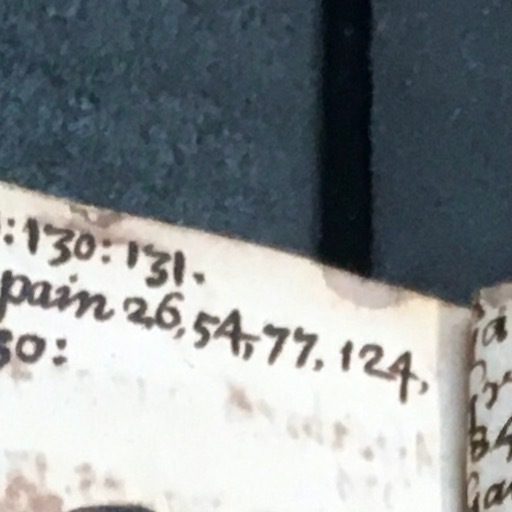 :130:131.
pain 26,54,77, 124,
50: